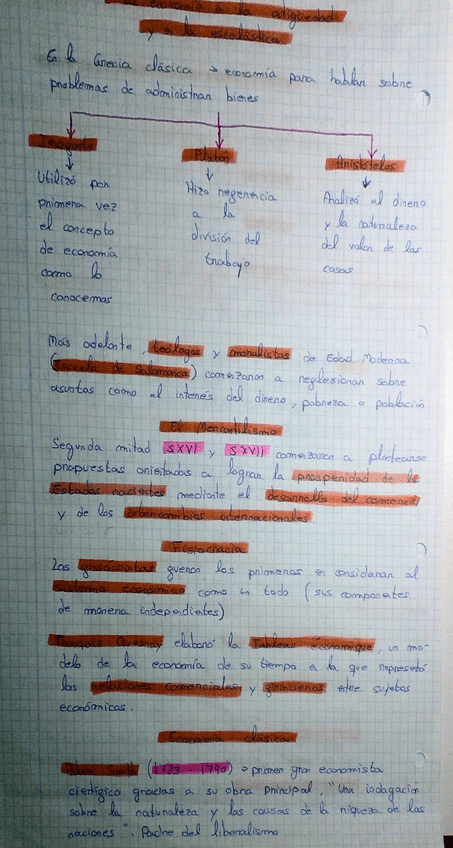 Economía en la antigüedad
y en la escolástica
En la Grecia clásica → economía para hablar sobre
problemas de administrar bienes
Jenofonte
Platón
Aristóteles
Utilizó por
primera vez
el concepto
de economía
como lo
conocemos
Hizo referencia
a la
división del
trabajo
Analizó el dinero
y la naturaleza
del valor de las
cosas
Más adelante, teólogos y moralistas de Edad Moderna
(Escuela de Salamanca) comenzaron a reflexionar sobre
asuntos como el interés del dinero, pobreza o población
El Mercantilismo
Segunda mitad SXVI y SXVII comenzaron a plantearse
propuestas orientadas a lograr la prosperidad de los
Estados nacientes mediante el desarrollo del comercio
y de los intercambios internacionales.
Fisiocracia
Los fisiócratas fueron los primeros en considerar al
sistema económico como un todo (sus componentes
de manera independientes)
Françoise Quesnay elaboró la Tableau économique, un mo-
delo de la economía de su tiempo a la que representó
las relaciones comerciales y financieras entre sujetos
económicos.
Economía clásica
Adam Smith (1723 - 1790) → primer gran economista
científico gracias a su obra principal, "Una indagación
sobre la naturaleza y las causas de la riqueza de las
naciones". Padre del liberalismo